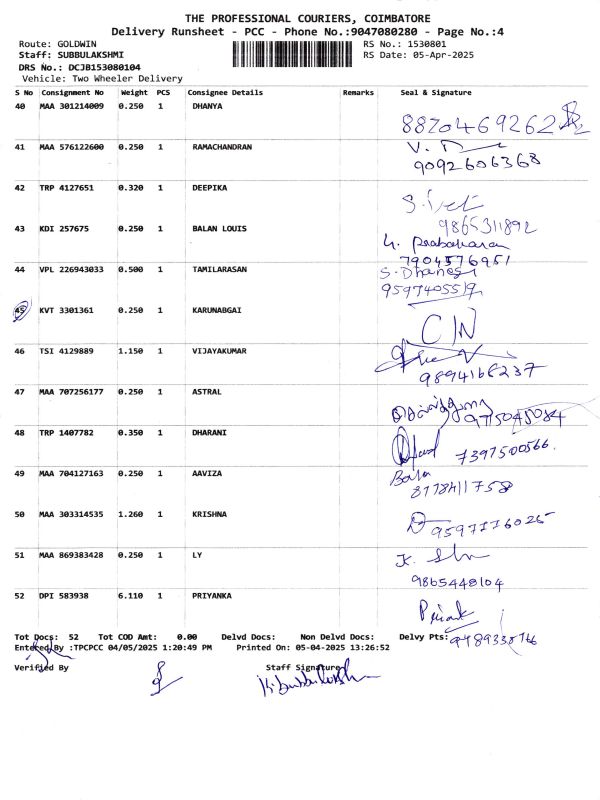 THE PROFESSIONAL COURIERS, COIMBATORE
Delivery Runsheet - PCC - Phone No.:9047080280 - Page No.:4
Route: GOLDWIN RS No.: 1530801
Staff: SUBBULAKSHMI RS Date: 05-Apr-2025
DRS No.: DCJB153080104
Vehicle: Two Wheeler Delivery
S No Consignment No Weight PCS Consignee Details Remarks Seal & Signature
40 MAA 301214009 0.250 1 DHANYA
8820469262
41 MAA 576122600 0.250 1 RAMACHANDRAN
9092606368
42 TRP 4127651 0.320 1 DEEPIKA
9865311892
43 KDI 257675 0.250 1 BALAN LOUIS
G. Prabaharan
7904576951
44 VPL 226943033 0.500 1 TAMILARASAN
S. Dhanesh
9597405519
45 KVT 3301361 0.250 1 KARUNABGAI
C/N
46 TSI 4129889 1.150 1 VIJAYAKUMAR
9894168237
47 MAA 707256177 0.250 1 ASTRAL
9715045084
48 TRP 1407782 0.350 1 DHARANI
7397500566
49 MAA 704127163 0.250 1 AAVIZA
Bala
8778411758
50 MAA 303314535 1.260 1 KRISHNA
9597776025
51 MAA 869383428 0.250 1 LY
9865448104
52 DPI 583938 6.110 1 PRIYANKA
Tot Docs: 52 Tot COD Amt: 0.00 Delvd Docs: Non Delvd Docs: Delvy Pts:
Entered By :TPCPCC 04/05/2025 1:20:49 PM Printed On: 05-04-2025 13:26:52
Verified By Staff Signature
K. Subbulakshmi